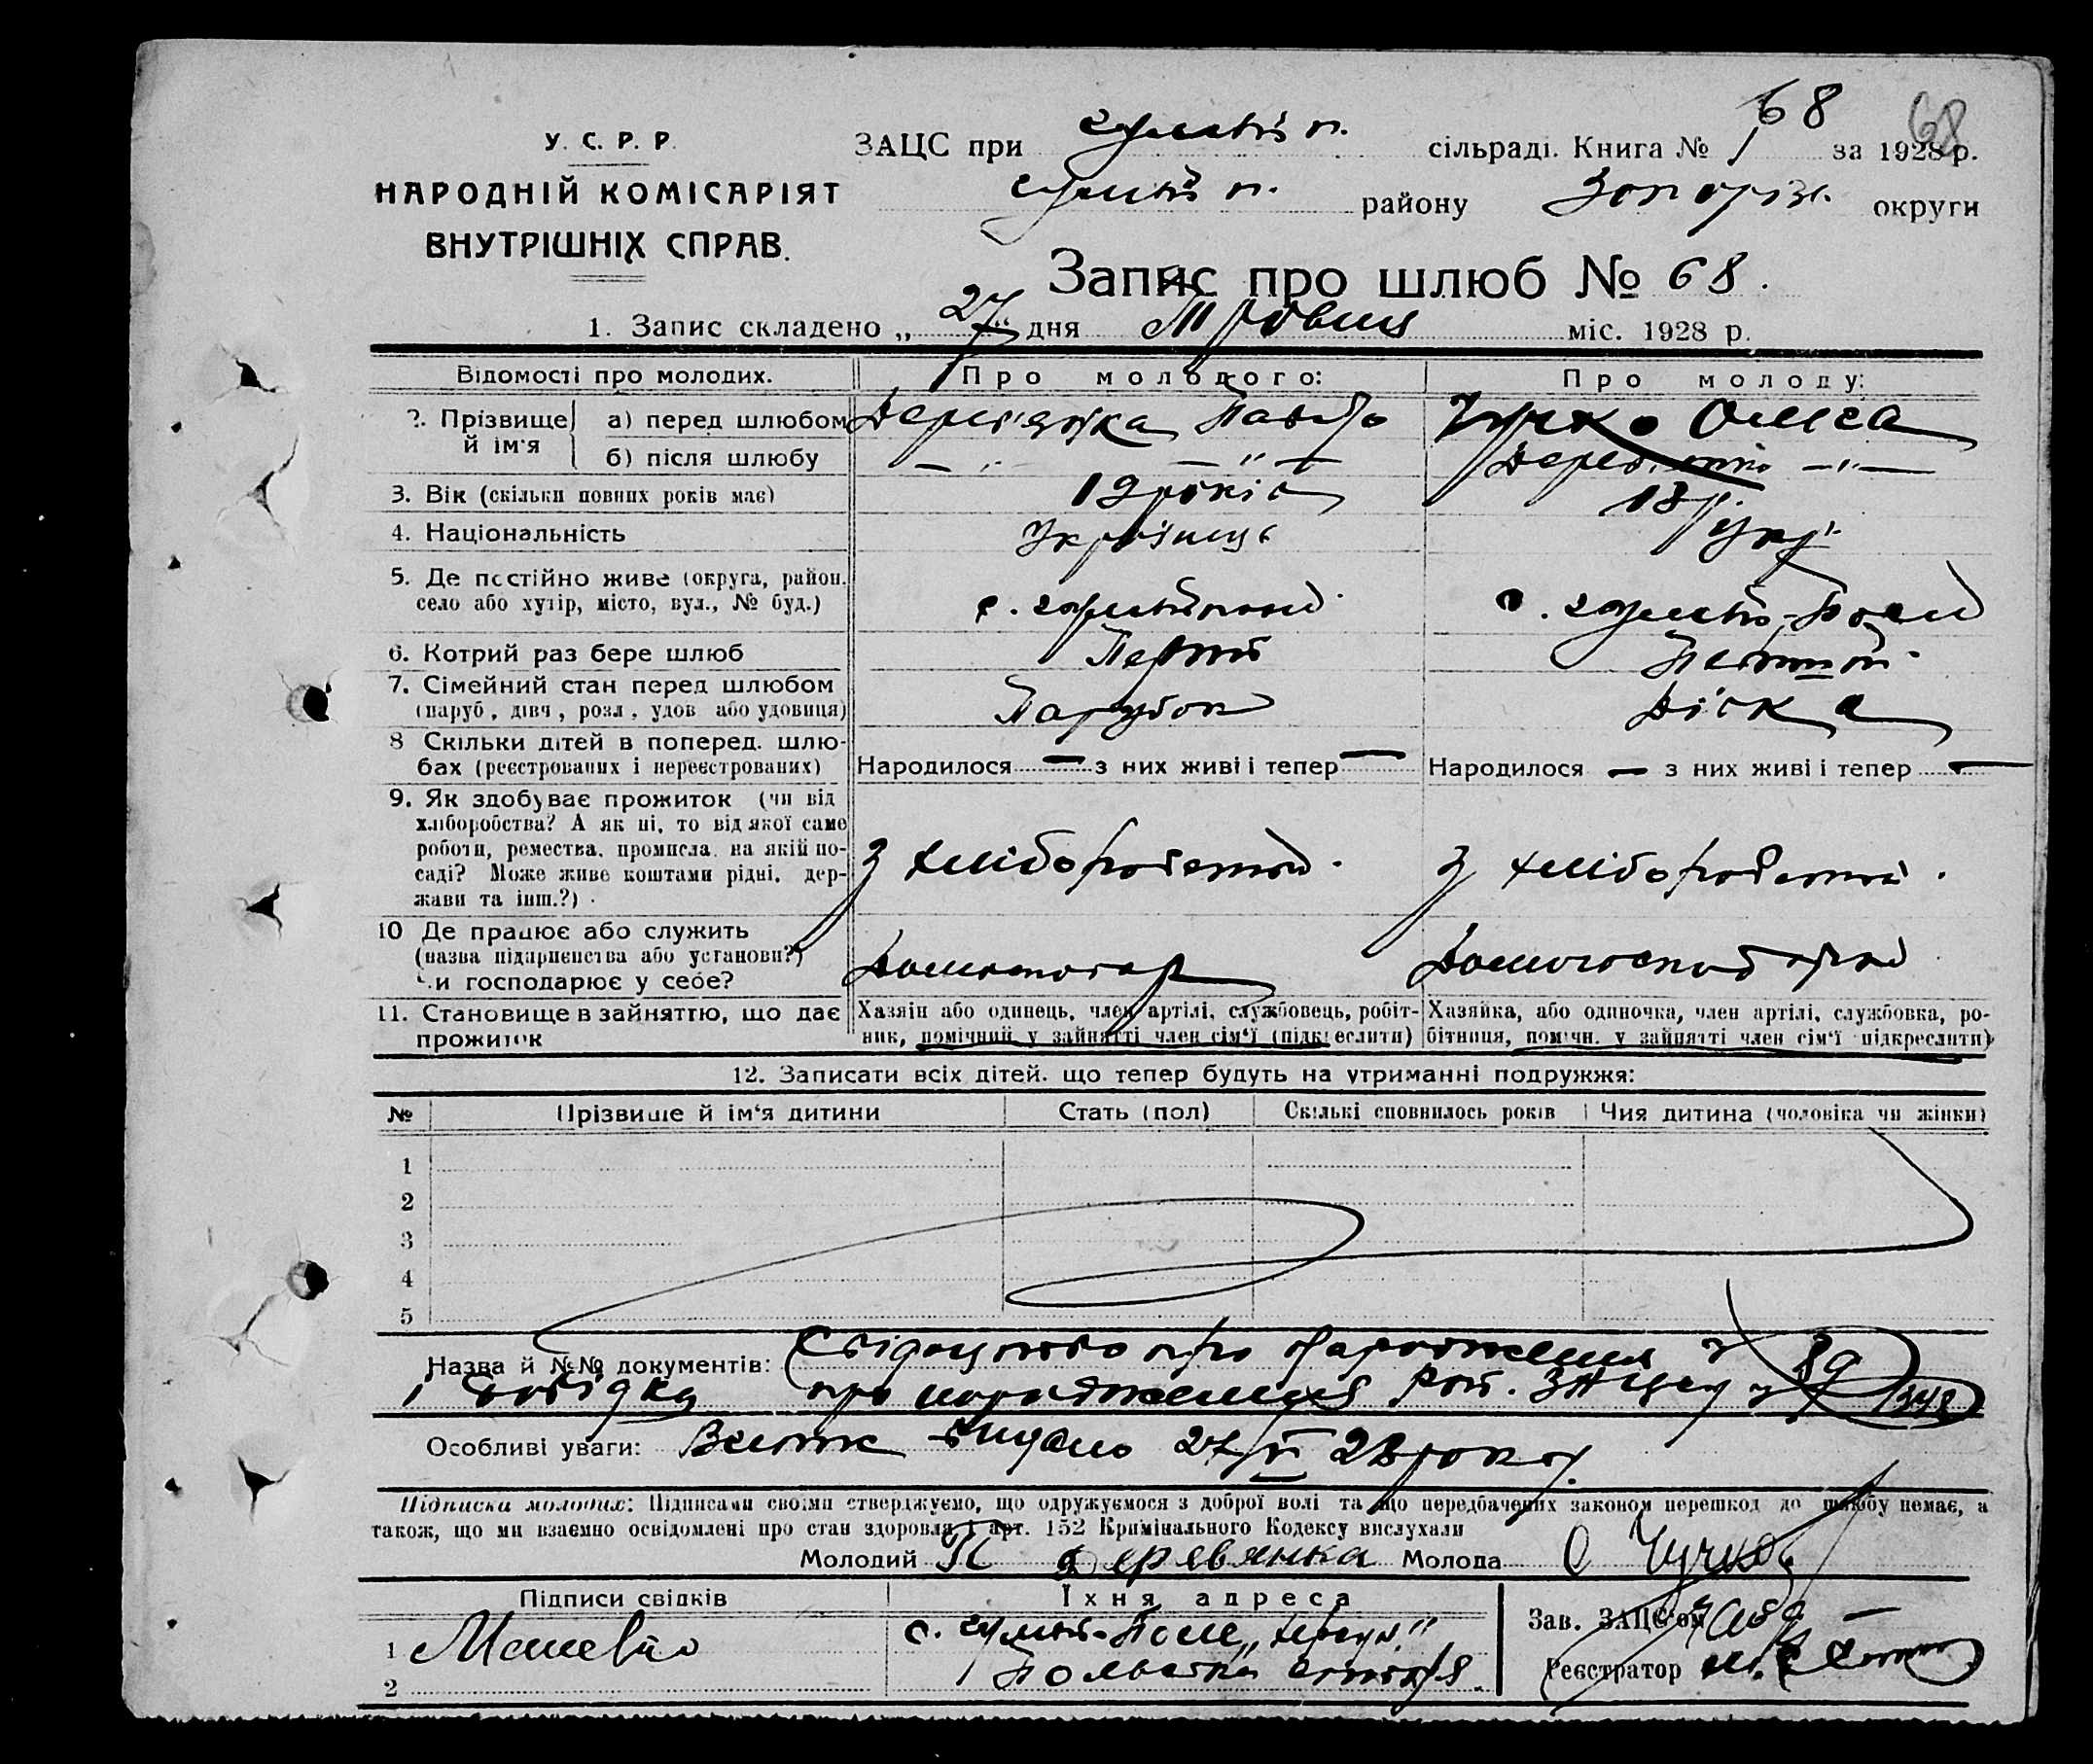 68
У. С. Р. Р.
НАРОДНІЙ КОМІСАРІЯТ
ВНУТРІШНІХ СПРАВ.
ЗАЦС при сільраді. Книга № 68 за 1928 р.
району Запоріз. округи
Запис про шлюб № 68.
1. Запис складено „27" дня Травня міс. 1928 р.
Відомості про молодих. Про молодого: Про молоду:
2. Прізвище й ім'я а) перед шлюбом Дерев'янка Павло Чучко Олекса
б) після шлюбу — „ — — „ — Дерев. — „ —
3. Вік (скільки повних років має) 19 років 18 р.
4. Національність Українець Укр.
5. Де постійно живе (округа, район, село або хутір, місто, вул., № буд.) с. с.
6. Котрий раз бере шлюб Перший
7. Сімейний стан перед шлюбом (паруб., дівч., розл., удов. або удовиця) Парубок Дівка
8 Скільки дітей в поперед. шлюбах (реєстрованих і нереєстрованих) Народилося — з них живі і тепер — Народилося — з них живі і тепер —
9. Як здобуває прожиток (чи від хліборобства? А як ні, то від якої саме роботи, ремества, промисла, на якій посаді? Може живе коштами рідні, держави та інш.?) З хліборобства. З хліборобства.
10 Де працює або служить (назва підприємства або установи?) Чи господарює у себе?
11. Становище в зайняттю, що дає прожиток
Хазяїн або одинець, член артілі, службовець, робітник, помічний у зайнятті член сім'ї (підкреслити)
Хазяйка, або одиночка, член артілі, службовка, робітниця, помічн. у зайнятті член сім'ї підкреслити)
12. Записати всіх дітей, що тепер будуть на утриманні подружжя:
№ Прізвище й ім'я дитини Стать (пол) Скількі сповнилось років Чия дитина (чоловіка чи жінки)
1
2
3
4
5
Назва й №№ документів: Свідоцтво про народження 89
і довідка про народження ЗАЦСу 348
Особливі уваги: Витяг видано 27/VI 28 року.
Підписка молодих: Підписами своїми стверджуємо, що одружуємося з доброї волі та що передбачених законом перешкод до шлюбу немає, а
також, що ми взаємно освідомлені про стан здоровля і арт. 152 Кримінального Кодексу вислухали
Молодий П Деревянка Молода О Чучко
Підписи свідків Їхня адреса Зав. ЗАЦС'ом
1 с.
2 Реєстратор